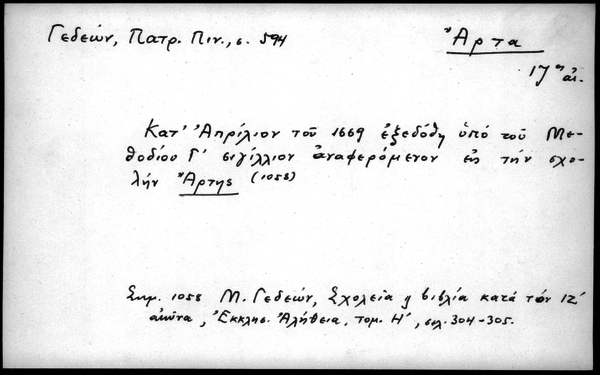 Γεδεών, Πατρ. Πιν., σ. 594
Ἄρτα
17ος αἰ.
Κατ' Ἀπρίλιον τοῦ 1669 ἐξεδόθη ὑπό τοῦ Με-
θοδίου Γ' σιγίλλιον ἀναφερόμενον εἰς τήν σχο-
λήν Ἄρτης (1058)
Σημ. 1058 Μ. Γεδεών, Σχολεῖα κ βιβλία κατά τόν ΙΖ'
αἰῶνα, Ἐκκλησ. Ἀλήθεια, τομ. Η', σελ. 304-305.